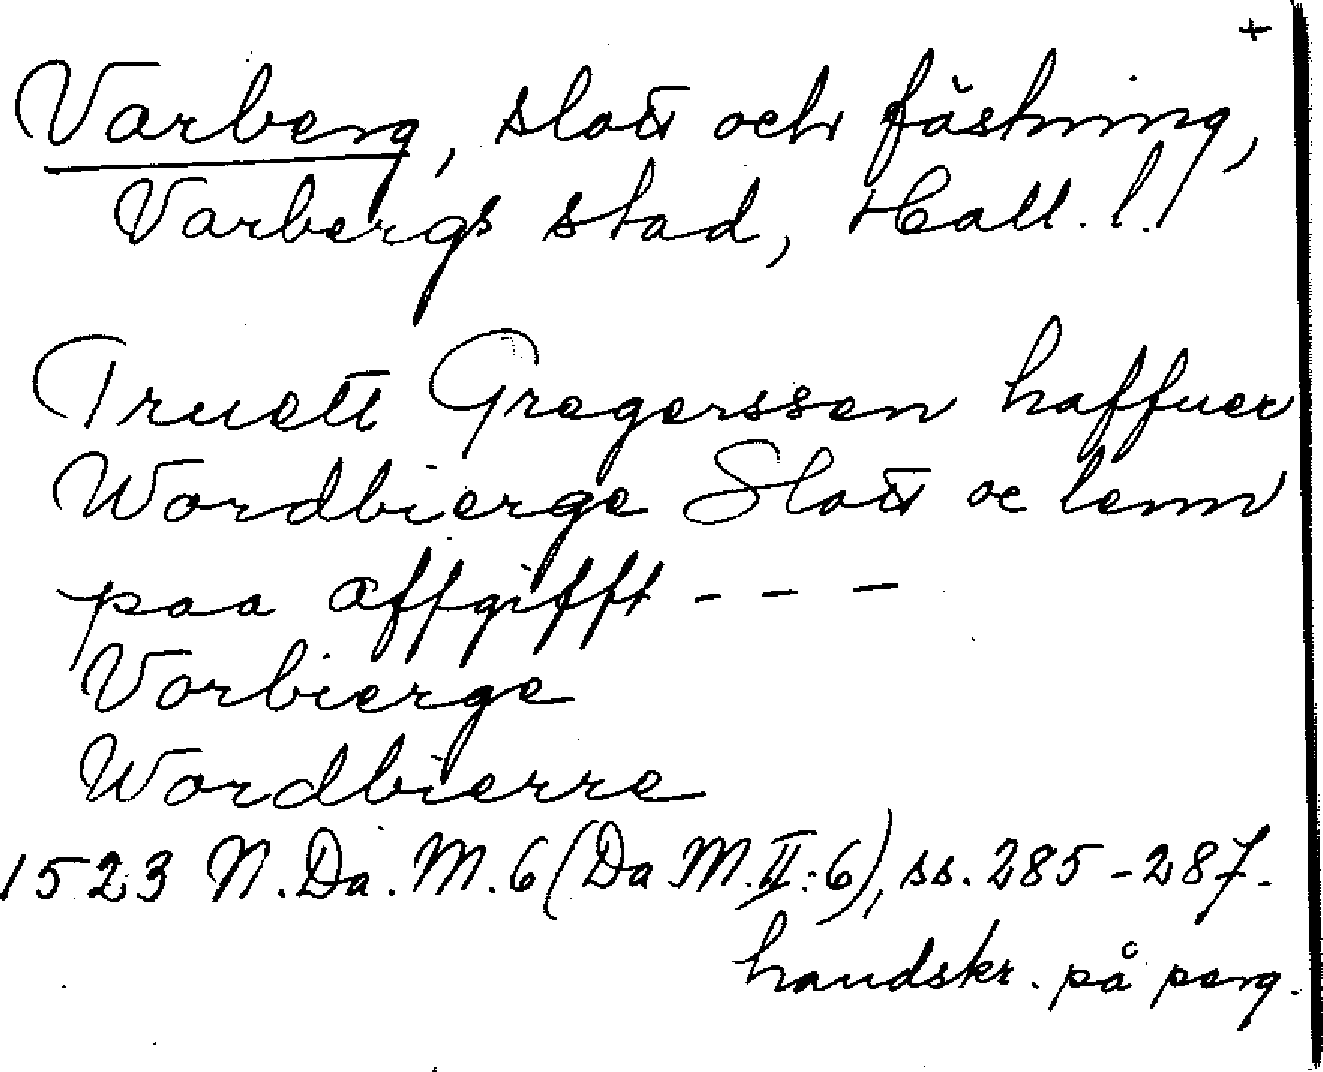 +
Varberg, slott och fästning,
Varbergs stad, Hall. l.
Truett Gregerssen haffuer
Wordbierge Slott oc lenn
paa affgifft - - -
Vorbierge
Wordbierre
1523 N. Da. M. 6 (Da M. II: 6), ss. 285-287.
handskr. på perg.